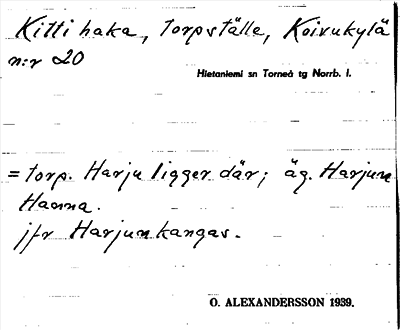 Kitti haka, torpställe, Koivukylä
n:r 20
Hietaniemi sn Torneå tg Norrb. l.
= torp. Harju ligger där; äg. Harjun
Hanna.
jfr Harjunkangas.
O. ALEXANDERSSON 1939.